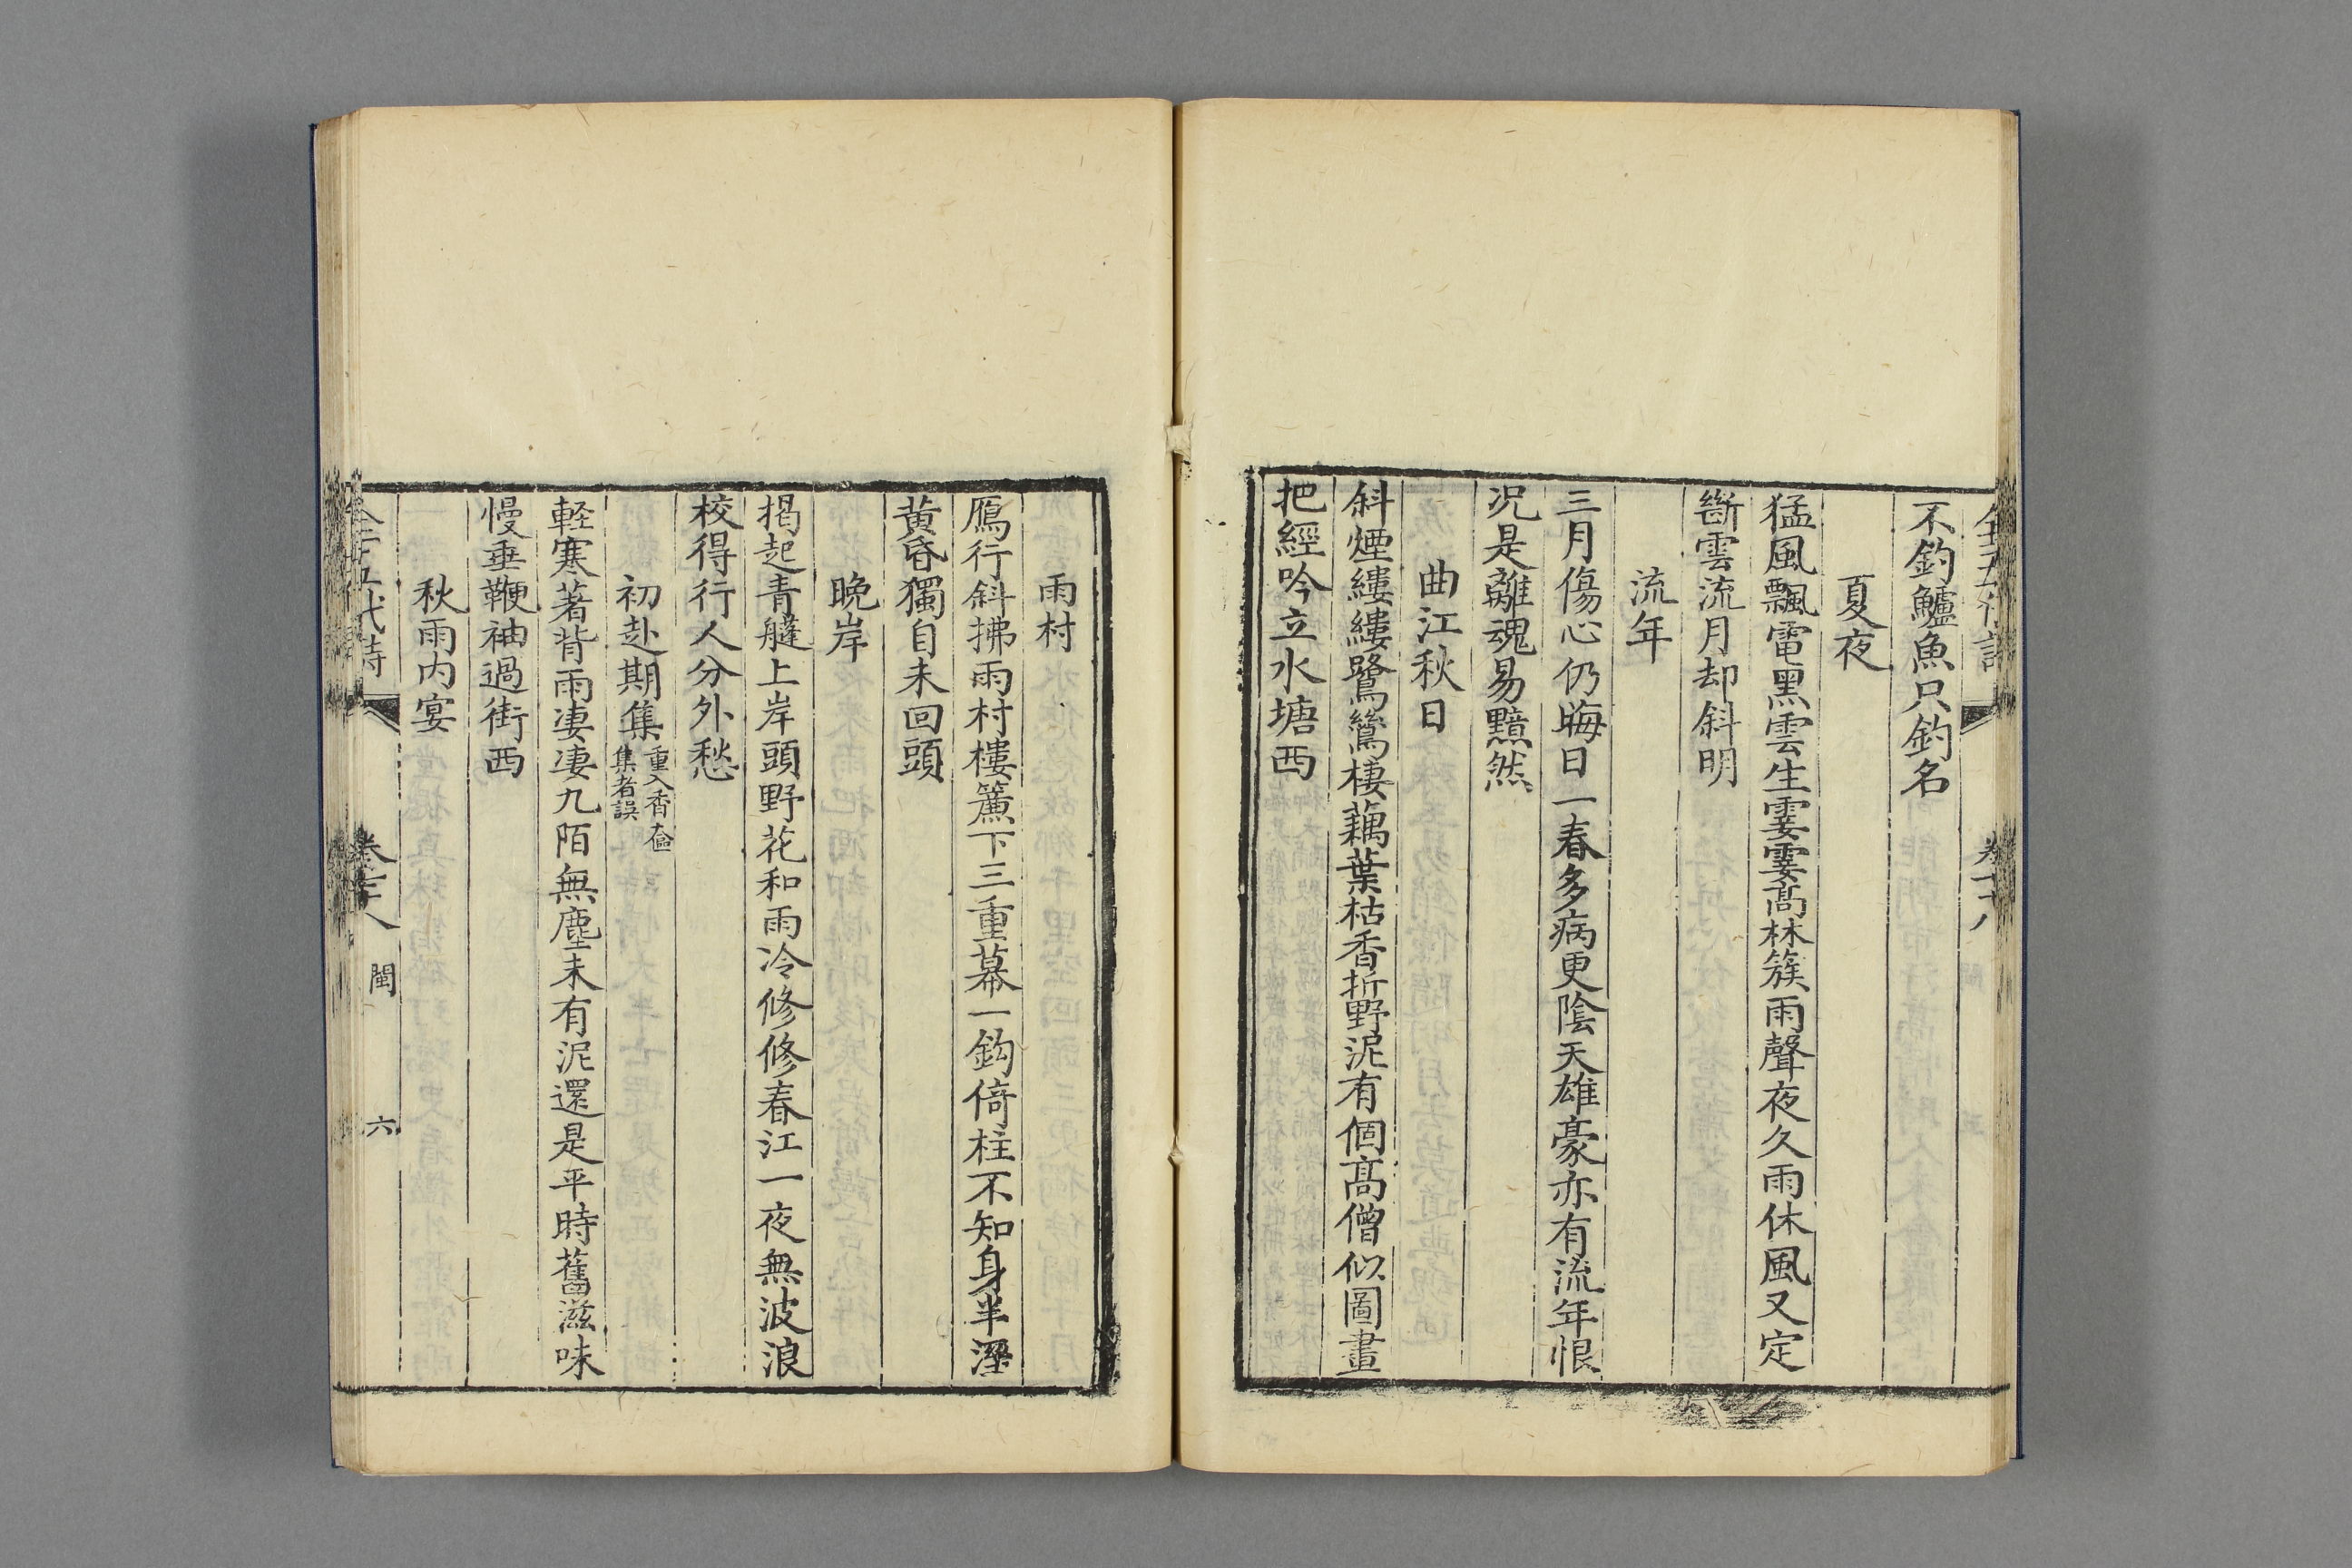 不釣鱸魚只釣名
夏夜
猛風飄電黑雲生霎霎髙林簇雨聲夜久雨休風又定
斷雲流月却斜明
流年
三月傷心仍晦日一春多病更陰天雄豪亦有流年恨
况是離魂易黯然
曲江秋日
斜煙縷縷鷺鷥棲藕葉枯香折野泥有個髙僧似圖畫
把經吟立水塘西
雨村
鴈行斜拂雨村樓簾下三重幕一鈎倚柱不知身半溼
黄昏獨自未回頭
晩岸
揭起青篷上岸頭野花和雨冷修修春江一夜無波浪
校得行人分外愁
初赴期集重入香奩集者誤
軽寒著背雨凄凄九陌無塵未有泥還是平時舊滋味
慢垂鞭袖過街西
秋雨内宴
全五代詩 卷七十八 閩 六